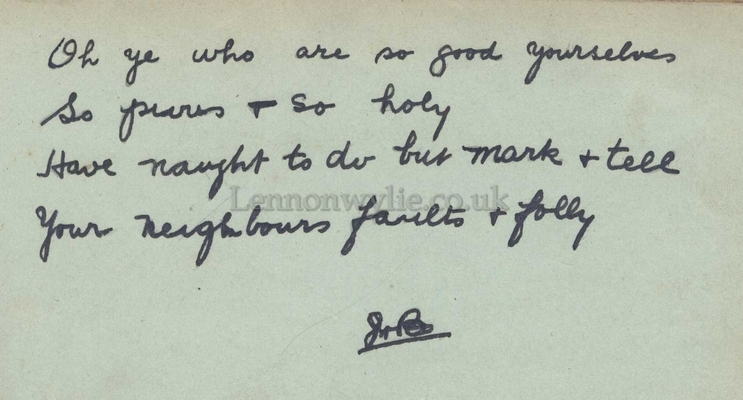 Oh ye who are so good yourselves
So pures + so holy
Have naught to do but mark + tell
Lennonwylie.co.uk
Your neighbours faults + folly